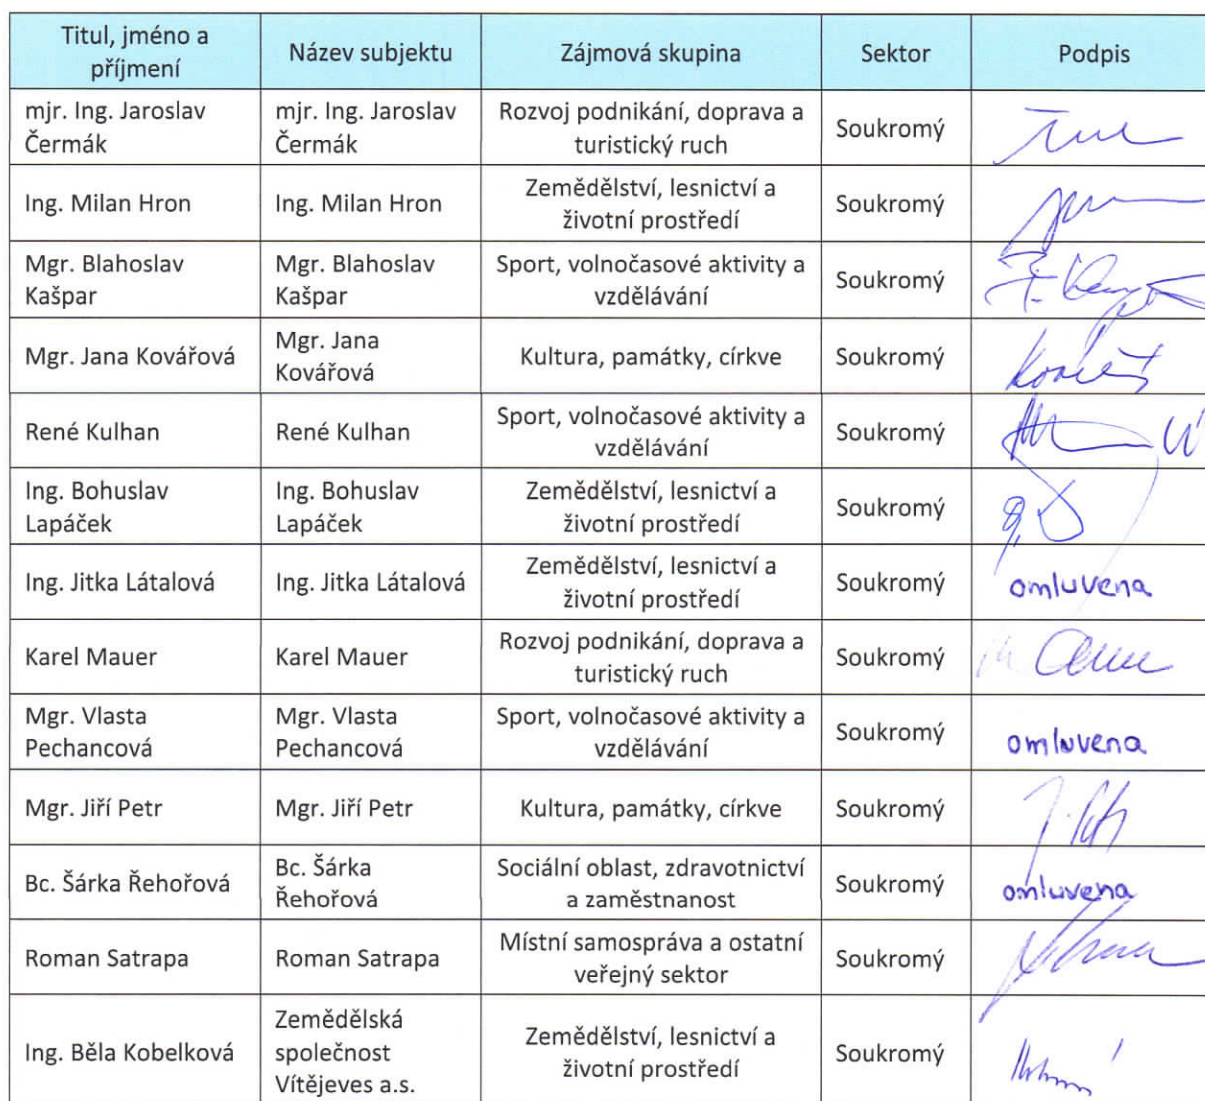 Titul, jméno a
příjmení
Název subjektu
Zájmová skupina
Sektor
Podpis
mjr. Ing. Jaroslav
Čermák
mjr. Ing. Jaroslav
Čermák
Rozvoj podnikání, doprava a
turistický ruch
Soukromý
Ing. Milan Hron
Ing. Milan Hron
Zemědělství, lesnictví a
životní prostředí
Soukromý
Mgr. Blahoslav
Kašpar
Mgr. Blahoslav
Kašpar
Sport, volnočasové aktivity a
vzdělávání
Soukromý
Mgr. Jana Kovářová
Mgr. Jana
Kovářová
Kultura, památky, církve
Soukromý
René Kulhan
René Kulhan
Sport, volnočasové aktivity a
vzdělávání
Soukromý
Ing. Bohuslav
Lapáček
Ing. Bohuslav
Lapáček
Zemědělství, lesnictví a
životní prostředí
Soukromý
Ing. Jitka Látalová
Ing. Jitka Látalová
Zemědělství, lesnictví a
životní prostředí
Soukromý
omluvena
Karel Mauer
Karel Mauer
Rozvoj podnikání, doprava a
turistický ruch
Soukromý
Mgr. Vlasta
Pechancová
Mgr. Vlasta
Pechancová
Sport, volnočasové aktivity a
vzdělávání
Soukromý
omluvena
Mgr. Jiří Petr
Mgr. Jiří Petr
Kultura, památky, církve
Soukromý
Bc. Šárka Řehořová
Bc. Šárka
Řehořová
Sociální oblast, zdravotnictví
a zaměstnanost
Soukromý
omluvena
Roman Satrapa
Roman Satrapa
Místní samospráva a ostatní
veřejný sektor
Soukromý
Ing. Běla Kobelková
Zemědělská
společnost
Vítějeves a.s.
Zemědělství, lesnictví a
životní prostředí
Soukromý